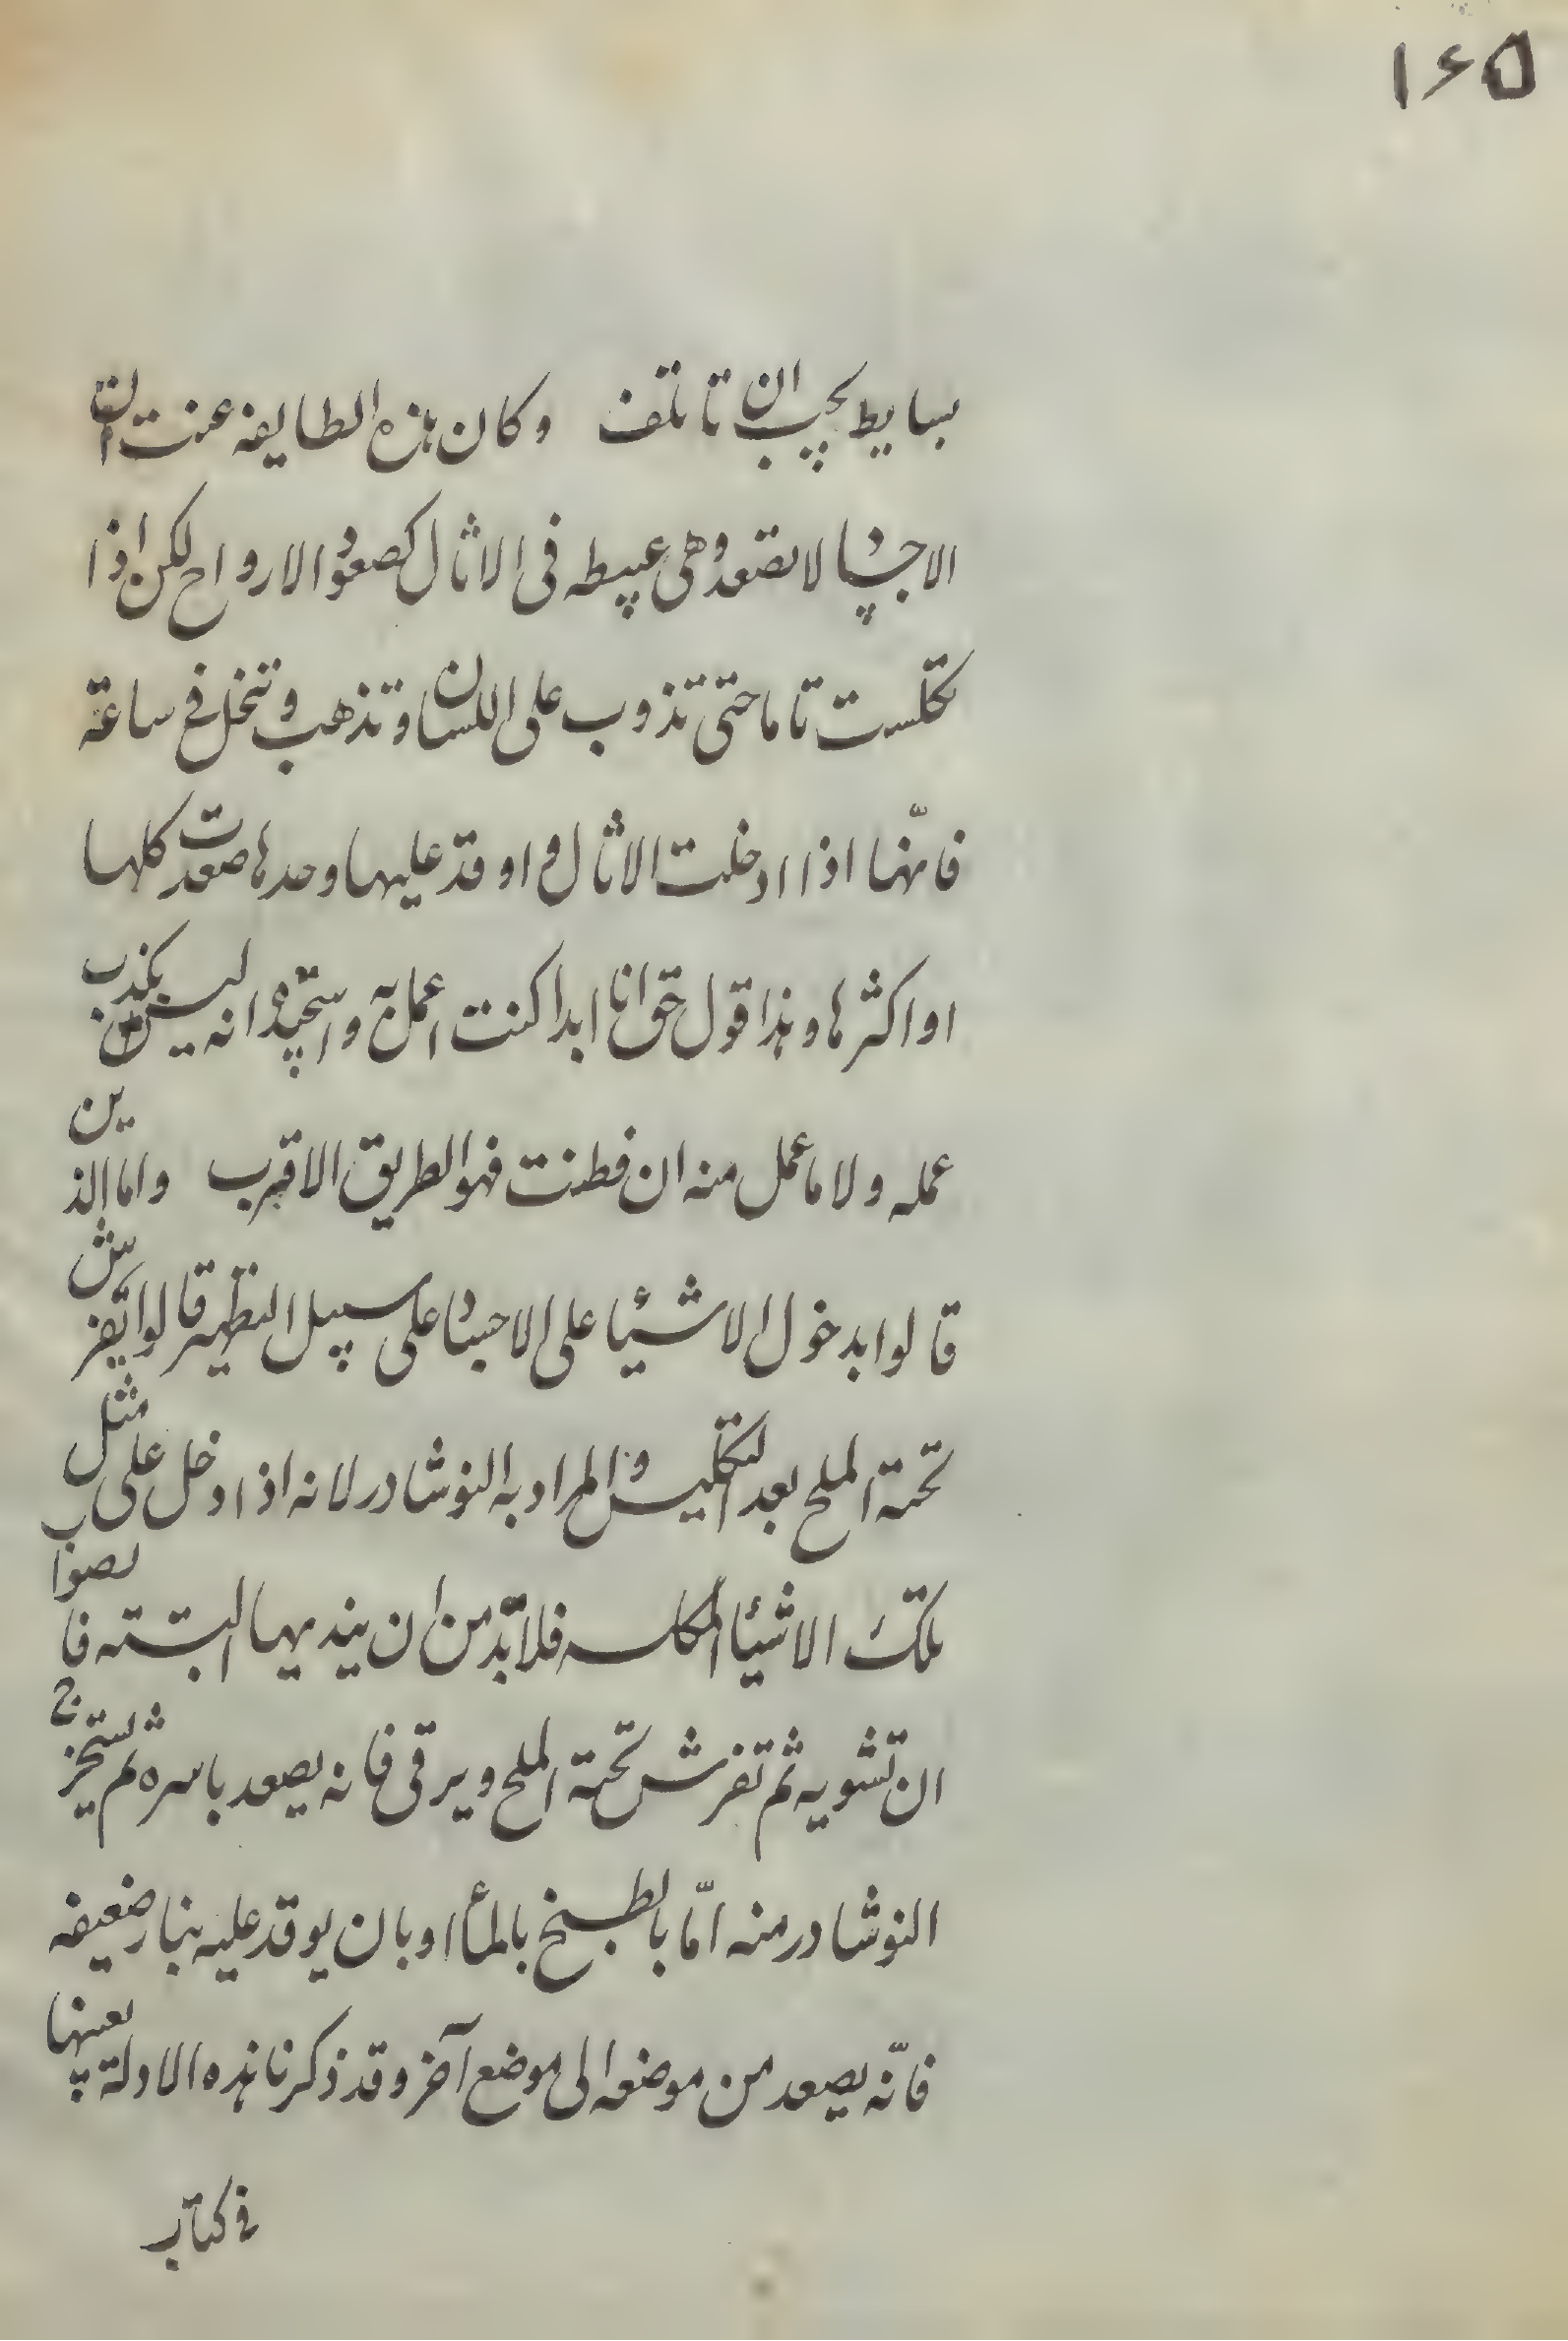 ۱۶۵
بسايط يجب ان تاتلف وكان هذه الطايفه عنت ان
الاجساد لا تصعد وهى عبيطه فى الاثال كصعود الارواح لكن اذا
تكلست تاما حتى تذوب على اللسان وتذهب وتنحل فى ساعة
فانّها اذا ادخلت الاثال واوقد عليها وحدها صعدت كلها
او اكثرها وهذا قول حق انا ابدا كنت اعمل به واستجيده انه ليس يكذب من
عمله ولا ما عمل منه ان فطنت فهو الطريق الاقرب واما الذين
قالوا بدخول الاشيا على الاجساد على سبيل التطهير قالوا يفرش
تحته الملح بعد التكليس والمراد به النوشادر لانه اذا دخل على مثل
تلك الاشيا المكلسه فلابدّ من ان يذيبها البته فالصواب
ان تشويه ثم تفرش تحته الملح ويرقى فانه يصعد باسره ثم تستخرج
النوشادر منه امّا بالطبخ بالمأ او بان يوقد عليه بنار ضعيفه
فانّه يصعد من موضعه الى موضع آخر وقد ذكرنا هذه الادلة بعينها
فى كتاب